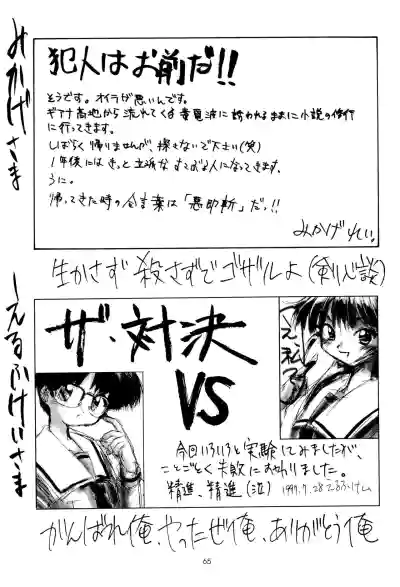 みかげさま
犯人はお前だ!!
そうです。オイラが悪いんです。
ギアナ高地から流れてくる毒電波に誘われるままに小説の修行
に行ってきます。
しばらく帰りませんが、探さないで下さい(笑)
1年後にはきっと立派な
人になってきます。
うに。
帰ってきた時の合言葉は「悪即斬」だっ!!
みかげれい。
生かさず殺さずでゴザルよ(剣心談)
えるふけいさま
ザ・対決
VS
え、私っ
今回いろいろと実験してみましたが、
ことごとく失敗におわりました。
精進、精進(泣)
1997.7.28
がんばれ俺、やったぜ俺、ありがとう俺
65